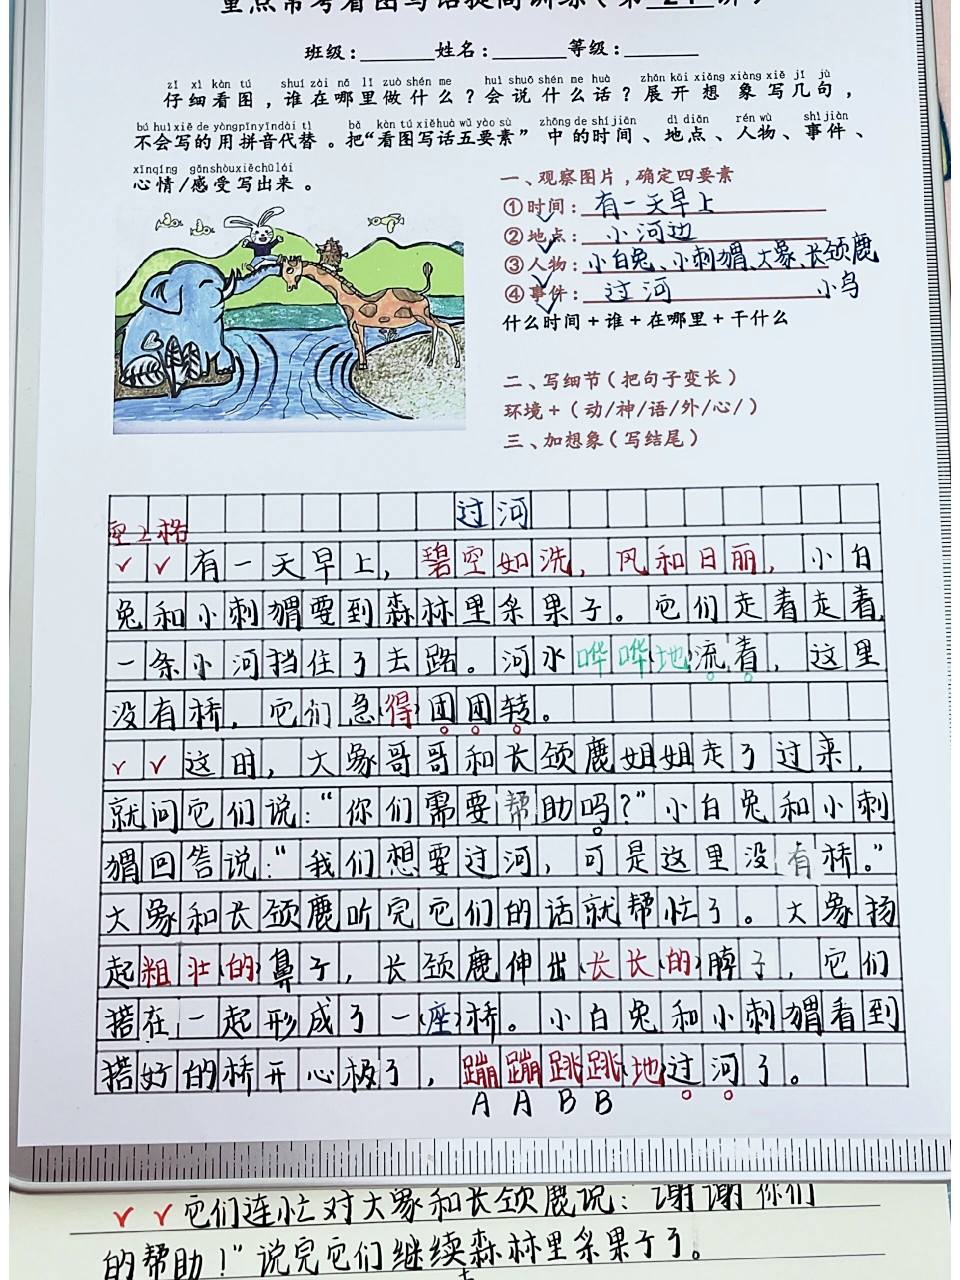 重点常考看图写话提高训练(第 21 讲)
班级: 姓名: 等级:
zǐ xì kàn tú shuí zài nǎ lǐ zuò shén me huì shuō shén me huà zhǎn kāi xiǎng xiàng xiě jǐ jù
仔细看图,谁在哪里做什么?会说什么话?展开想象写几句,
bú huì xiě de yòng pīn yīn dài tì bǎ kàn tú xiě huà wǔ yào sù zhōng de shí jiān dì diǎn rén wù shì jiàn
不会写的用拼音代替。把“看图写话五要素”中的时间、地点、人物、事件、
xīn qíng gǎn shòu xiě chū lái
心情/感受写出来。
一、观察图片,确定四要素
①时间: 有一天早上
②地点: 小河边
③人物: 小白兔、小刺猬、大象、长颈鹿
④事件: 过河 小鸟
什么时间+谁+在哪里+干什么
二、写细节(把句子变长)
环境+(动/神/语/外/心/)
三、加想象(写结尾)
过河
空2格
有一天早上,碧空如洗,风和日丽,小白
兔和小刺猬要到森林里采果子。它们走着走着,
一条小河挡住了去路。河水哗哗地流着,这里
没有桥,它们急得团团转。
这时,大象哥哥和长颈鹿姐姐走了过来,
就问它们说:“你们需要帮助吗?”小白兔和小刺
猬回答说:“我们想要过河,可是这里没有桥。”
大象和长颈鹿听完它们的话就帮忙了。大象扬
起粗壮的鼻子,长颈鹿伸出长长的脖子,它们
搭在一起形成了一座桥。小白兔和小刺猬看到
搭好的桥开心极了,蹦蹦跳跳地过河了。
A A B B
它们连忙对大象和长颈鹿说:“谢谢你们
的帮助!”说完它们继续森林里采果子了。